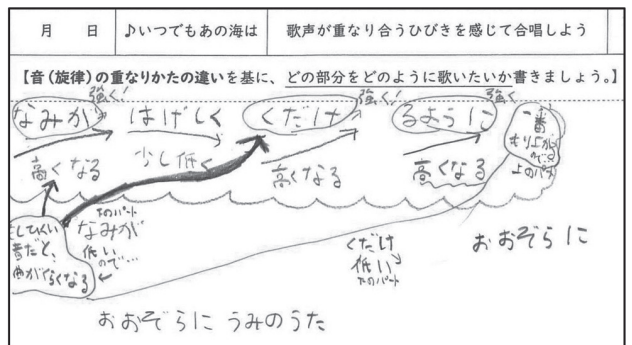 月　日
♪いつでもあの海は
歌声が重なり合うひびきを感じて合唱しよう
【音（旋律）の重なりかたの違いを基に、どの部分をどのように歌いたいか書きましょう。】
強く！ 強く！ 強く
なみが はげしく くだけ るように
一番
もり上がる
ので
上のパート
高くなる 少し低く 高くなる 高くなる
してひくい
音だと、
曲がくらくなる
下のパート
なみが
低い
ので…
くだけ
低い
下のパート
おおぞらに
おおぞらに うみのうた